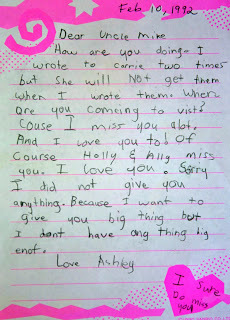 Feb 10, 1992
Dear Uncle Mike
How are you doing? I
wrote to carrie two times
but she will Not get them
when I wrote them. When
are you comeing to vist?
Couse I miss you alot.
And I love you to! Of
Course Holly & Ally miss
you. I love you. Sorry
I did not give you
anything. Because I want to
give you big thing but
I dont have any thing big
enof.
Love Ashley
I Sure
Do miss
you